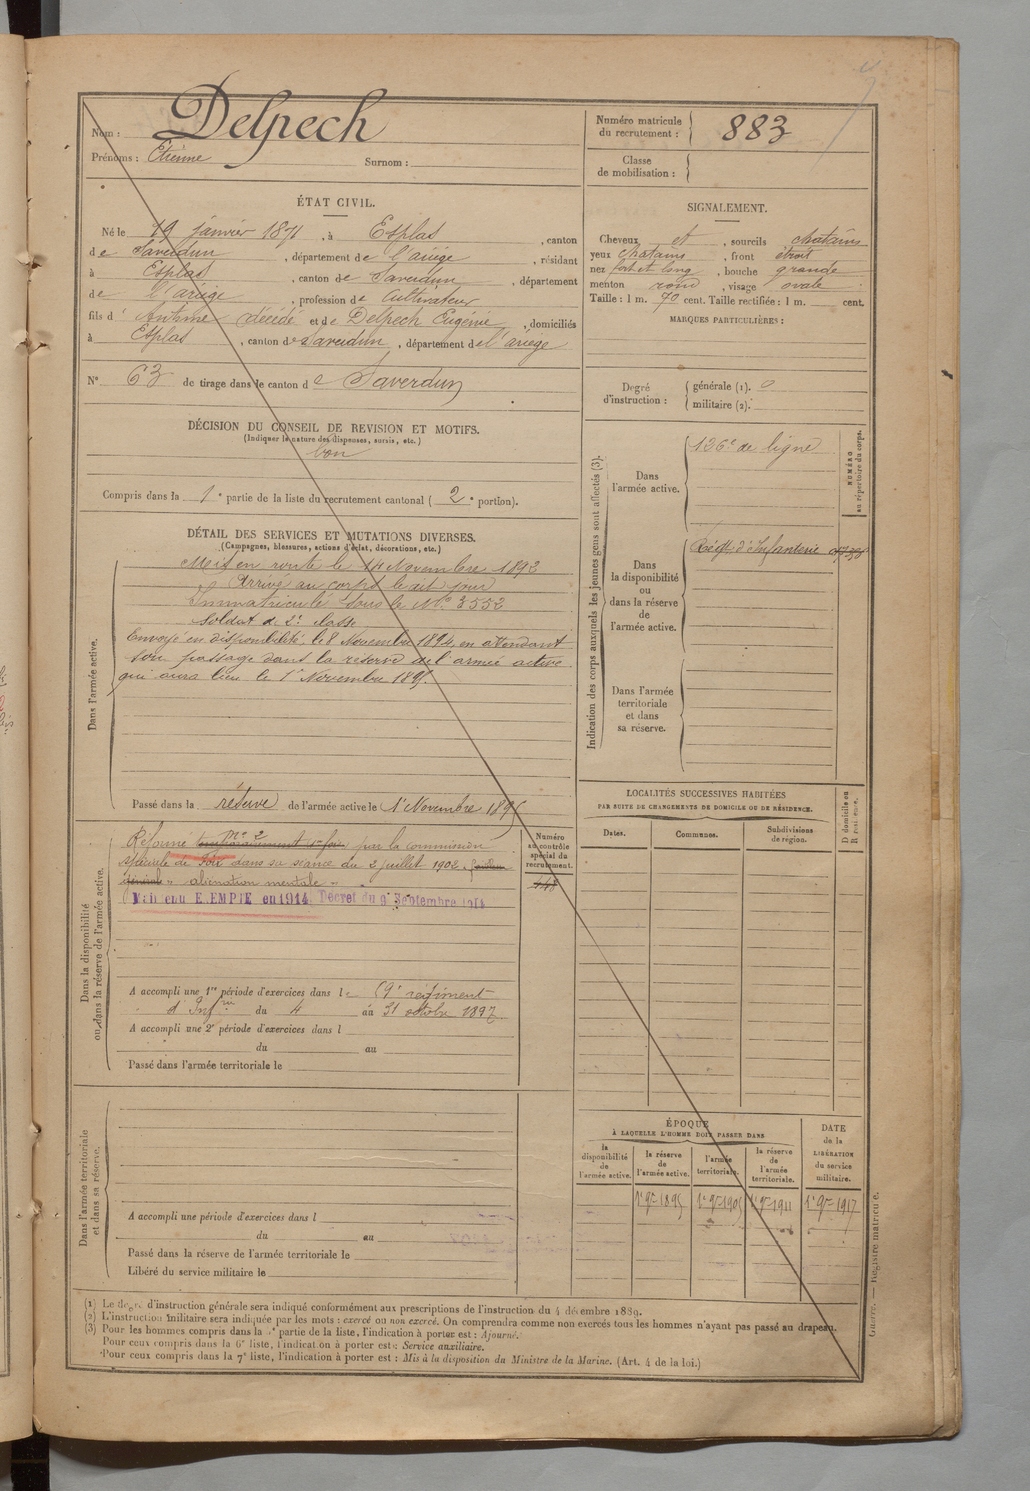 Nom : Delpech
Prénoms : Etienne Surnom :
Numéro matricule du recrutement : 883
Classe de mobilisation :
ÉTAT CIVIL.
Né le 19 janvier 1871, à Esplas, canton
de Saverdun, département de l'ariège, résidant
à Esplas, canton de Saverdun, département
de l'ariège, profession de Cultivateur
fils d' Antime décédé et de Delpech Eugénie, domiciliés
à Esplas, canton de Saverdun, département de l'ariège
N° 63 de tirage dans le canton de Saverdun
SIGNALEMENT.
Cheveux et, sourcils chatains
yeux chatains, front étroit
nez fort et long, bouche grande
menton rond, visage ovale
Taille : 1 m. 70 cent. Taille rectifiée : 1 m. cent.
MARQUES PARTICULIÈRES :
Degré d'instruction :
générale (1). 0
militaire (2).
DÉCISION DU CONSEIL DE REVISION ET MOTIFS.
(Indiquer la nature des dispenses, sursis, etc.)
bon
Compris dans la 1e partie de la liste du recrutement cantonal ( 2e portion).
DÉTAIL DES SERVICES ET MUTATIONS DIVERSES.
(Campagnes, blessures, actions d'éclat, décorations, etc.)
Dans l'armée active.
Mis en route le 14 Novembre 1892
Arrivé au corps le dit jour
Immatriculé sous le N° 3552
Soldat de 2e classe
Envoyé en disponibilité le 8 Novembre 1894, en attendant
son passage dans la réserve de l'armée active
qui aura lieu le 1r Novembre 1895.
Passé dans la réserve de l'armée active le 1r Novembre 1895
Indication des corps auxquels les jeunes gens sont affectés (3).
NUMÉRO au répertoire du corps.
Dans l'armée active.
126e de ligne
Dans la disponibilité ou dans la réserve de l'armée active.
Régt d'Infanterie
Dans l'armée territoriale et dans sa réserve.
LOCALITÉS SUCCESSIVES HABITÉES
PAR SUITE DE CHANGEMENTS DE DOMICILE OU DE RÉSIDENCE.
Dates. Communes. Subdivisions de région. D domicile ou R résidence.
Dans la disponibilité ou dans la réserve de l'armée active.
Numéro au contrôle spécial du recrutement.
448
n° 2
Réformé temporairement 1re fois par la commission
spéciale de Foix dans sa séance du 2 juillet 1902
générale " aliénation mentale "
Maintenu EXEMPTÉ en 1914 Décret du 9 Septembre 1914
A accompli une 1re période d'exercices dans le 59e régiment
d'Infrie du 4 au 31 octobre 1897
A accompli une 2e période d'exercices dans l
du au
Passé dans l'armée territoriale le
Dans l'armée territoriale et dans sa réserve.
A accompli une période d'exercices dans l
du au
Passé dans la réserve de l'armée territoriale le
Libéré du service militaire le
ÉPOQUE
À LAQUELLE L'HOMME DOIT PASSER DANS
la disponibilité de l'armée active.
la réserve de l'armée active.
l'armée territoriale.
la réserve de l'armée territoriale.
DATE de la LIBÉRATION du service militaire.
1r 9re 1895 1r 9re 1905 1r 9re 1911 1r 9re 1917
(1) Le degré d'instruction générale sera indiqué conformément aux prescriptions de l'instruction du 4 décembre 1889.
(2) L'instruction militaire sera indiquée par les mots : exercé ou non exercé. On comprendra comme non exercés tous les hommes n'ayant pas passé au drapeau.
(3) Pour les hommes compris dans la 5e partie de la liste, l'indication à porter est : Ajourné.
Pour ceux compris dans la 6e liste, l'indication à porter est : Service auxiliaire.
Pour ceux compris dans la 7e liste, l'indication à porter est : Mis à la disposition du Ministre de la Marine. (Art. 4 de la loi.)
Guerre. — Registre matricule.